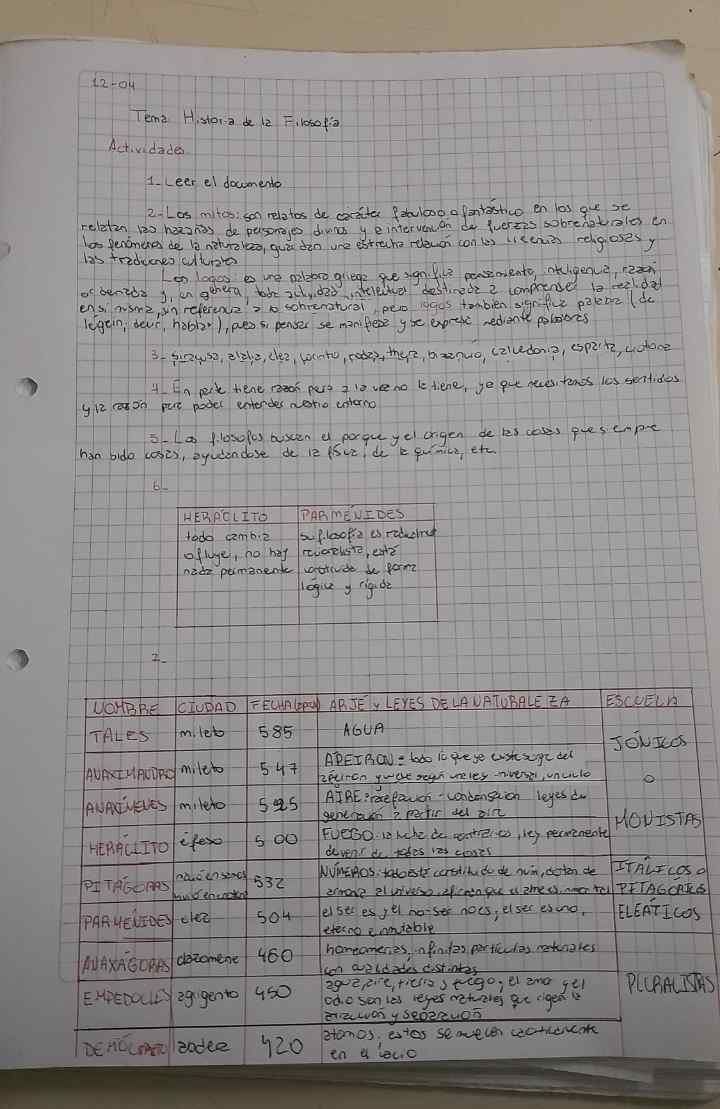 12-04
Tema: Historia de la Filosofía
Actividades
1- Leer el documento
2- Los mitos: son relatos de carácter fabuloso o fantástico en los que se
relatan las hazañas de personajes divinos y e intervención de fuerzas sobrenaturales en
los fenómenos de la naturaleza, guardan una estrecha relación con las creencias religiosas y
las tradiciones culturales
Los logos: es una palabra griega que significa pensamiento, inteligencia, razón
y, en general, toda actividad intelectual destinada a comprender la realidad
en si misma, sin referencia a lo sobrenatural, pero logos también significa palabra (de
légein, decir, hablar), pues si pensar se manifiesa y se expresa mediante palabras
3- siracusa, elea, corinto, rodas, thera, bizancio, calcedonia, esparta, crotona
4- En parte tiene razón pero a la vez no la tiene, ya que necesitamos los sentidos
y la razón para poder entender nuestro entorno
5- Los filosofos buscan el porque y el origen de las cosas que siempre
han sido cosas, ayudandose de la física, de la química, etc.
6-
HERACLITO PARMÉNIDES
todo cambia su filosofía es
o fluye, no hay esta
nada permanente construida de forma
lógica y rígida
7-
NOMBRE CIUDAD FECHA (epoca) ARJÉ Y LEYES DE LA NATURALEZA ESCUELA
TALES mileto 585 AGUA
JÓNICOS
ANAXIMANDRO mileto 547 APEIRON = todo lo que ya existe surge del
apeiron y un ciclo
O
ANAXÍMENES mileto 525 AIRE: rarefacción - condensación leyes de
generación a partir del aire
MONISTAS
HERÁCLITO éfeso 500 FUEGO: lucha de contrarios, ley permanente
devenir de todas las cosas
PITÁGORAS nació en samos 532 NÚMEROS: todo esta constituido de num, dotan de
armonia al universo, afirman que el alma es inmortal
ITÁLICOS O
PITAGÓRICOS
PARMÉNIDES elea 504 el ser es y el no-ser no es, el ser es uno,
eterno e inmutable
ELEÁTICOS
ANAXÁGORAS clazomene 460 homeomerias, infinitas partículas naturales
con cualidades distintas
EMPEDOCLES agrigento 450 agua, aire, tierra y fuego; el amor y el
odio son las leyes naturales que rigen la
atracción y separación
PLURALISTAS
DEMÓCRITO 420 atomos, estos se mueven
en el vacio